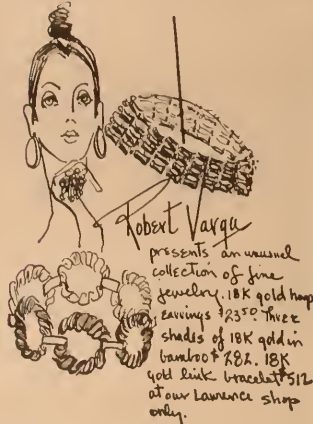 Robert Varga
presents an unusual
collection of fine
jewelry. 18K gold hoop
earrings $23.50. Three
shades of 18K gold in
bamboo $282. 18K
gold link bracelet $512
at our Lawrence shop
only.